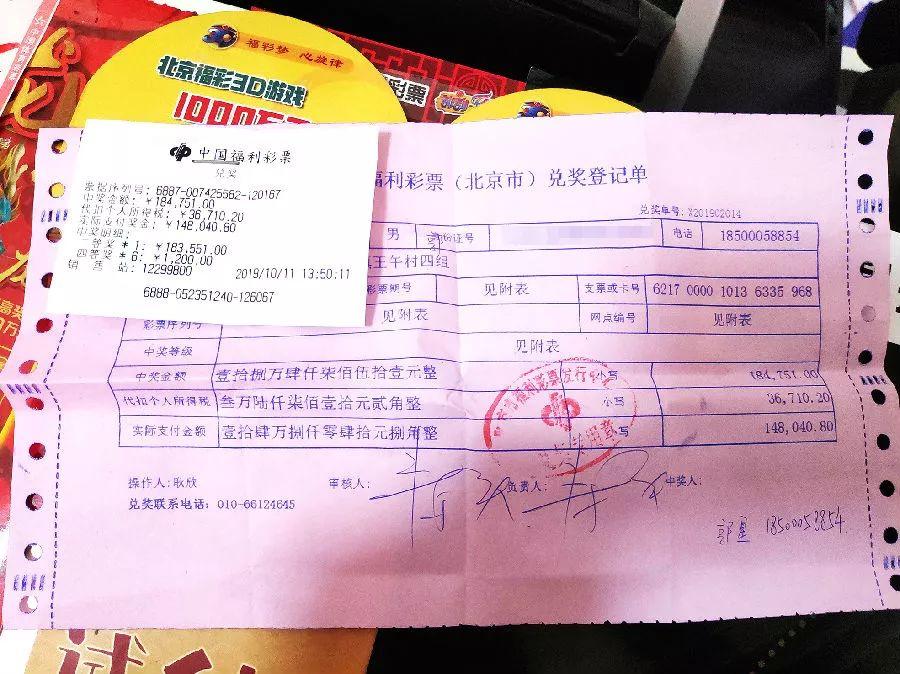 福彩梦 心旋律
北京福彩3D游戏
彩票
中国福利彩票
兑奖
票据序列号: 6887-007425562-120167
中奖金额: ￥184,751.00
代扣个人所得税: ￥36,710.20
实际支付奖金: ￥148,040.80
中奖明细:
一等奖 * 1: ￥183,551.00
四等奖 * 6: ￥1,200.00
销 售 站: 12299800
2019/10/11 13:50:11
6888-052351240-126067
福利彩票（北京市）兑奖登记单
兑奖单号: X201902014
男 身份证号 电话 18500058854
王午村四组
彩票期号 见附表 支票或卡号 6217 0000 1013 6335 968
彩票序列号 见附表 网点编号 见附表
中奖等级 见附表
中奖金额 壹拾捌万肆仟柒佰伍拾壹元整 小写 184,751.00
代扣个人所得税 叁万陆仟柒佰壹拾元贰角整 小写 36,710.20
实际支付金额 壹拾肆万捌仟零肆拾元捌角整 小写 148,040.80
操作人: 耿欣 审核人: 负责人: 中奖人:
兑奖联系电话: 010-66124645
郭星 18500053854